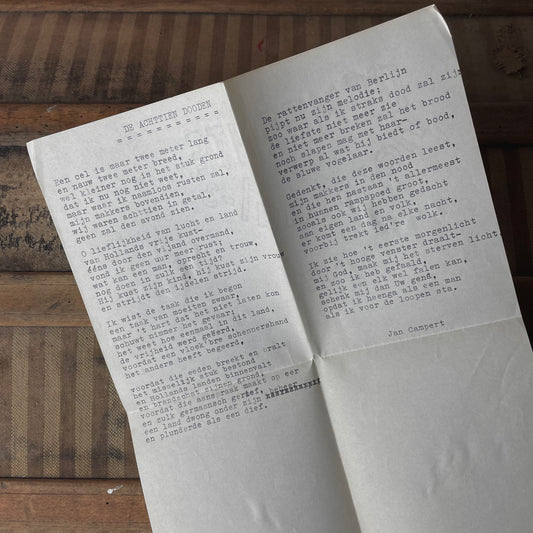 DE ACHTTIEN DOODEN
Een cel is maar twee meter lang
en nauw twee meter breed,
wel kleiner nog is het stuk grond
dat ik nu nog niet weet,
maar waar ik naamloos rusten zal,
mijn makkers bovendien,
wij waren achttien in getal,
geen zal den avond zien.
O lieflijkheid van lucht en land
van Hollands vrije kust-
ééns door den vijand overmand,
vond ik geen uur meer rust;
wat kan een man, oprecht en trouw,
nog doen in zulk een tijd?
Hij kust zijn kind, hij kust zijn vrouw
en strijdt den ijdelen strijd.
Ik wist de taak die ik begon
een taak van moeiten zwaar,
maar 't hart dat het niet laten kon
schuwt nimmer het gevaar;
het weet hoe eenmaal in dit land,
de vrijheid werd geëerd,
voordat een vloek'bre schennershand
het anders heeft begeerd,
voordat die eeden breekt en bralt
het misselijk stuk bestond
en Hollands landen binnenvalt
en brandschat zijnen grond,
voordat die aanspraak maakt op eer
en zulk germaansch gerief,
een land dwong onder zijn beheer
en plunderde als een dief.
De rattenvanger van Berlijn
pijpt nu zijn melodie;
zoo waar als ik straks dood zal zijn
de liefste niet meer zie
en niet meer breken zal het brood
noch slapen mag met haar-
verwerp al wat hij biedt of bood,
de sluwe vogelaar.
Gedenkt, die deze woorden leest,
mijn makkers in den nood
en die hen nastaan 't allermeest
in hunnen rampspoed groot,
zooals ook wij hebben gedacht
aan eigen land en volk,
er komt een dag na elke nacht,
voorbij trekt ied're wolk.
Ik zie hoe 't eerste morgenlicht
door 't hooge venster draalt-
mijn God, maak mij het sterven licht
en zoo ik heb gefaald,
gelijk een elk wel falen kan,
schenk mij dan Uw genâ,
opdat ik heenga als een man
als ik voor de loopen sta.
Jan Campert